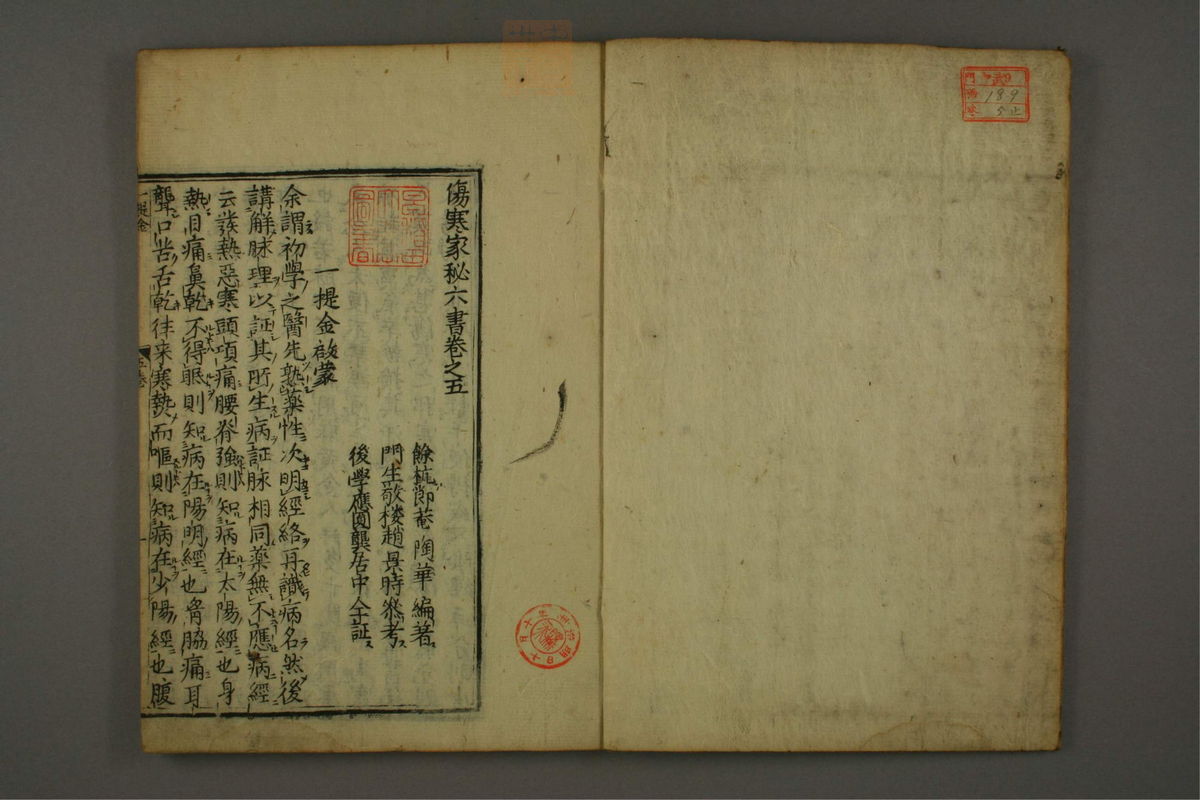 傷寒家秘六書卷之五
餘杭節菴陶華編著
門生敬楼趙景時參考
後學應圓龔居中全証
一提金啟蒙
余謂初學之醫先熟藥性次明經絡再識病名然後
講解脉理以証其所生病証脉相同藥無不應病經
云發熱惡寒頭項痛腰脊強則知病在太陽經也身
熱目痛鼻乾不得眠則知病在陽明經也胷脇痛耳
聾口苦舌乾徃来寒熱而嘔則知病在少陽經也腹
一提金
五卷
一
189